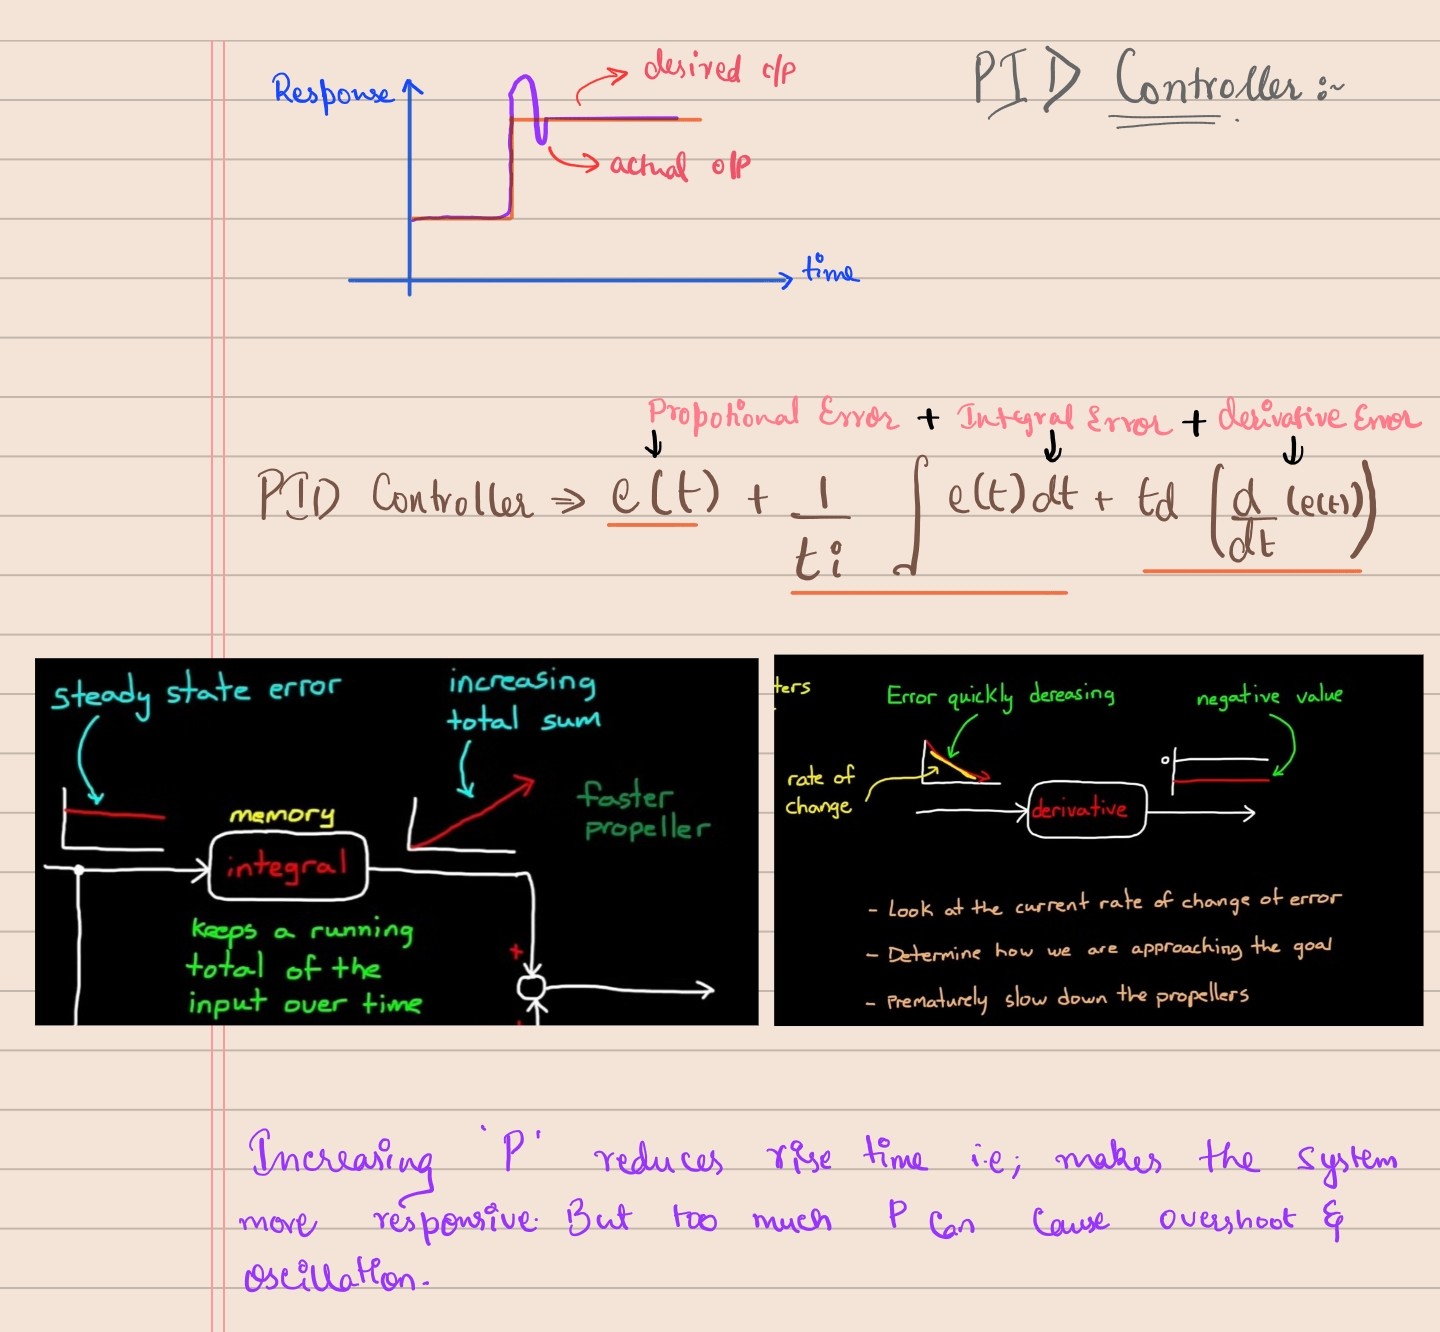 PID Controller :~
Response
desired o/p
actual o/p
time
Propotional Error + Integral Error + derivative Error
PID Controller ⇒ e(t) + 1/ti ∫ e(t) dt + td (d/dt (e(t)))
steady state error
increasing
total sum
faster
propeller
memory
integral
keeps a running
total of the
input over time
+
ters
Error quickly dereasing
negative value
rate of
change
0
derivative
- Look at the current rate of change of error
- Determine how we are approaching the goal
- Prematurely slow down the propellers
Increasing 'P' reduces rise time i.e; makes the system
more responsive. But too much P can cause overshoot &
oscillation.